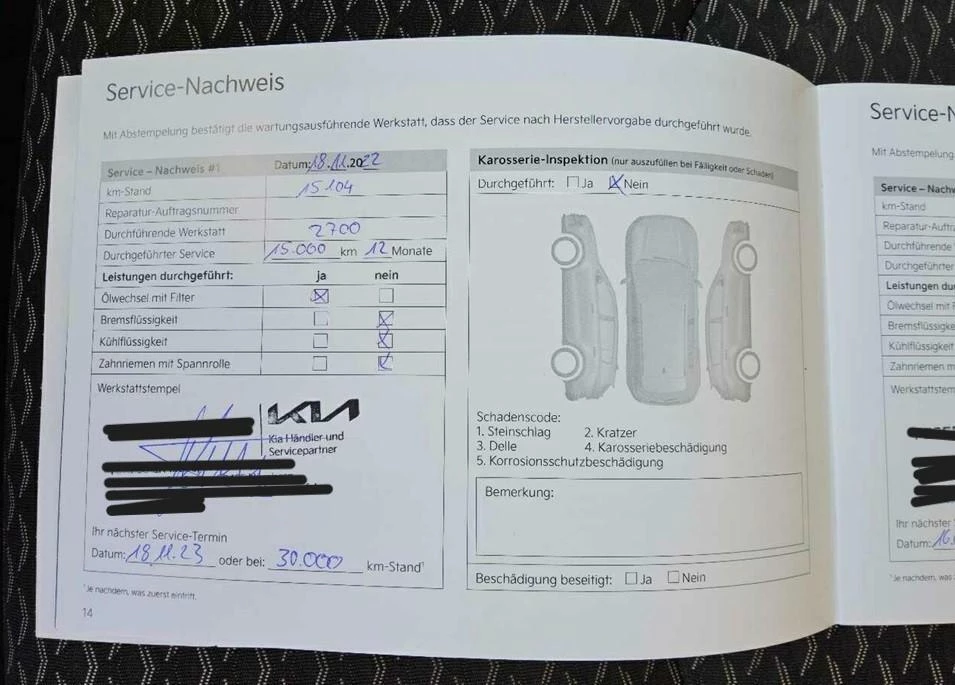 Service-Nachweis
Mit Abstempelung bestätigt die wartungsausführende Werkstatt, dass der Service nach Herstellervorgabe durchgeführt wurde.
Service – Nachweis #1 Datum: 18.11.2022
km-Stand 15104
Reparatur-Auftragsnummer
Durchführende Werkstatt 2700
Durchgeführter Service 15.000 km 12 Monate
Leistungen durchgeführt: ja nein
Ölwechsel mit Filter
Bremsflüssigkeit
Kühlflüssigkeit
Zahnriemen mit Spannrolle
Werkstattstempel
KIA
Kia Händler und
Servicepartner
Ihr nächster Service-Termin
Datum: 18.11.23 oder bei: 30.000 km-Stand¹
¹Je nachdem, was zuerst eintrifft.
14
Karosserie-Inspektion (nur auszufüllen bei Fälligkeit oder Schaden)
Durchgeführt: Ja Nein
Schadenscode:
1. Steinschlag 2. Kratzer
3. Delle 4. Karosseriebeschädigung
5. Korrosionsschutzbeschädigung
Bemerkung:
Beschädigung beseitigt: Ja Nein
Service-N
Mit Abstempelung
Service – Nachw
km-Stand
Reparatur-Auftra
Durchführende
Durchgeführter
Leistungen du
Ölwechsel mit F
Bremsflüssigke
Kühlflüssigkeit
Zahnriemen m
Werkstattstem
Ihr nächster
Datum: 16.
¹Je nachdem, was